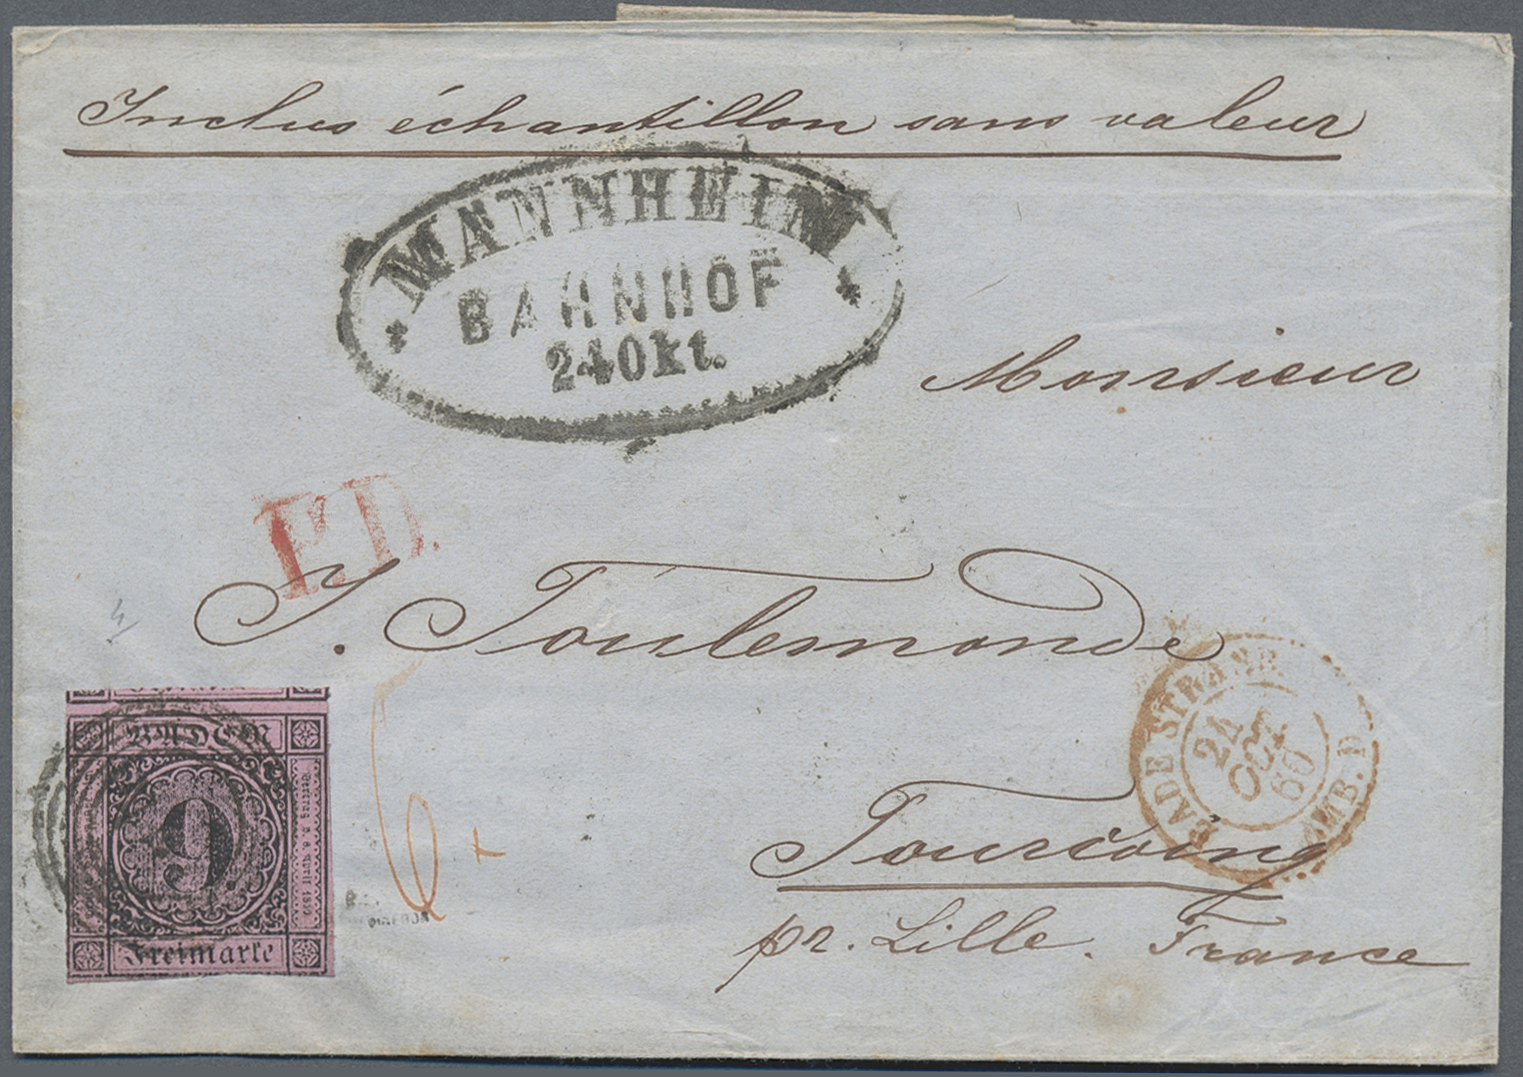 Inclus échantillon sans valeur
MANNHEIM
BAHNHOF
24 Okt.
Monsieur
P.D.
J. Toulemonde
BADE STRASB.
24
OCT
60
AMB. D
BADEN
9.
Freimarke
6
Tourcoing
pr. Lille. France